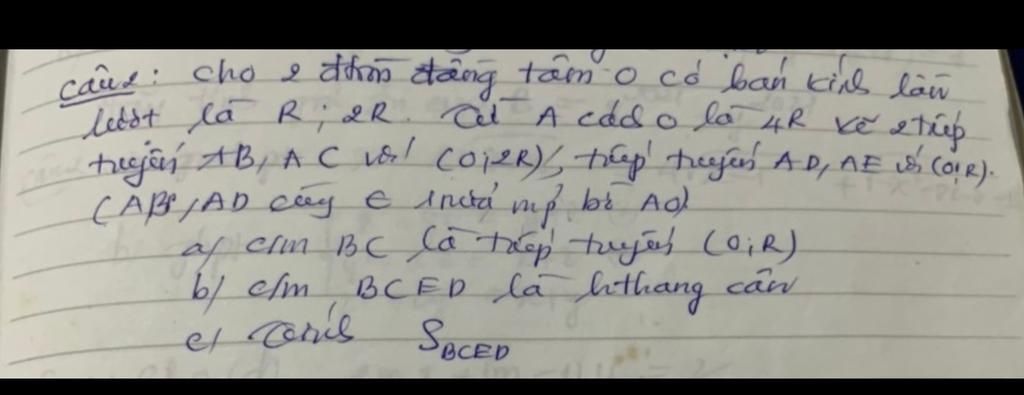 câu2: cho 2 đtròn đồng tâm O có bán kính lần
lượt là R; 2R. Từ A cách O là 4R kẽ 2 tiếp
tuyến AB, AC với (O;2R), tiếp tuyến AD, AE với (O;R).
(AB, AD cùng ∈ 1 nửa mp bờ AO)
a/ c/m BC là tiếp tuyến (O;R)
b/ c/m BCED là hthang cân
c/ Tính S_BCED